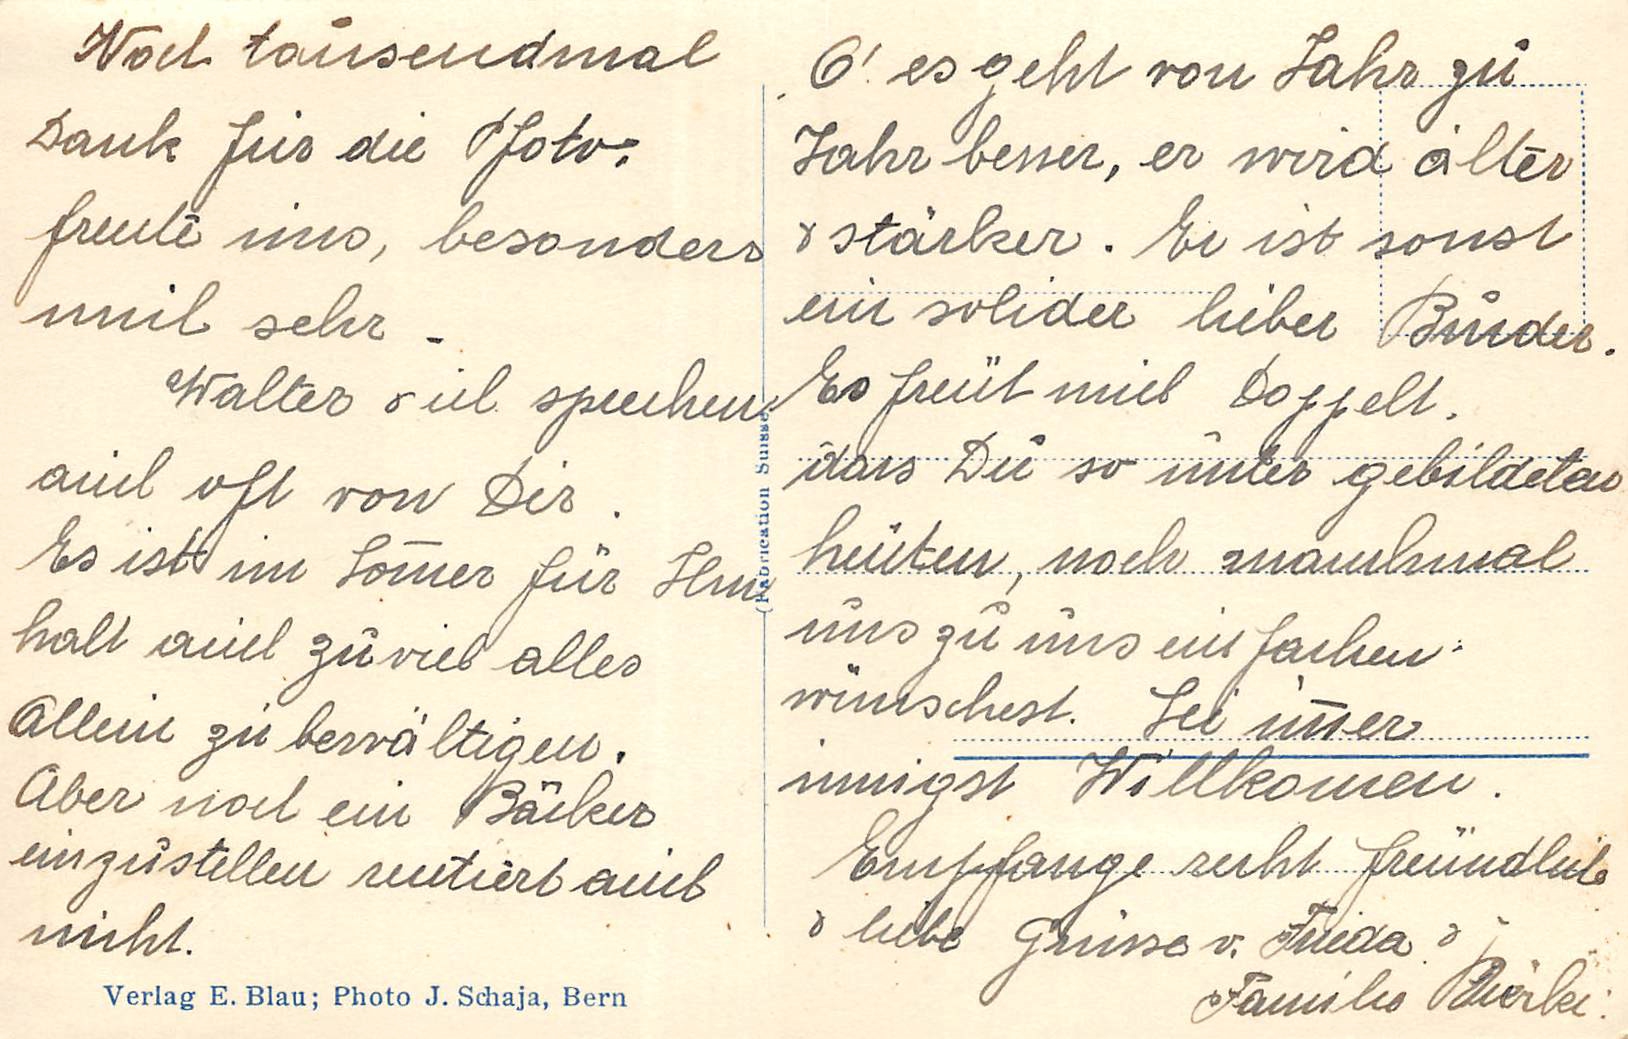 Noch tausendmal
Dank für die Pfoto,
freute uns, besonders
mich sehr.
Walter & ich sprechen
auch oft von Dir.
Es ist im Som̄er für Ihn
halt auch zu viel alles
Allein zu bewältigen.
Aber noch ein Bäcker
einzustellen rentiert auch
nicht.
Verlag E. Blau; Photo J. Schaja, Bern
(Fabrication Suisse)
O! es geht von Jahr zu
Jahr besser, er wird älter
& stärker. Er ist sonst
ein solider lieber Bruder.
Es freut mich Doppelt.
dass Du so unter gebildeten
heuten, noch manchmal
uns zu uns einfachen
wünschest. Sei im̄er
innigst Willkomen.
Empfange recht freundlich
& liebe Grüsse v. Frieda &
Familie